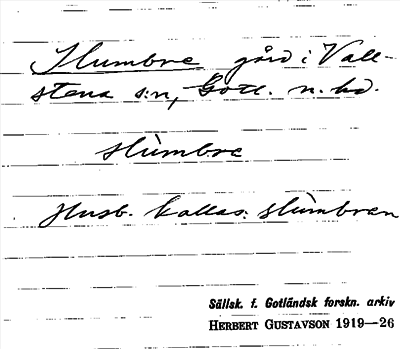 Slumbre gård i Vall-
stena s:n, Gotl. n. hd.
slùmbrε
Husb. kallas: slùmbran
Sällsk. f. Gotländsk forskn. arkiv
HERBERT GUSTAVSON 1919—26